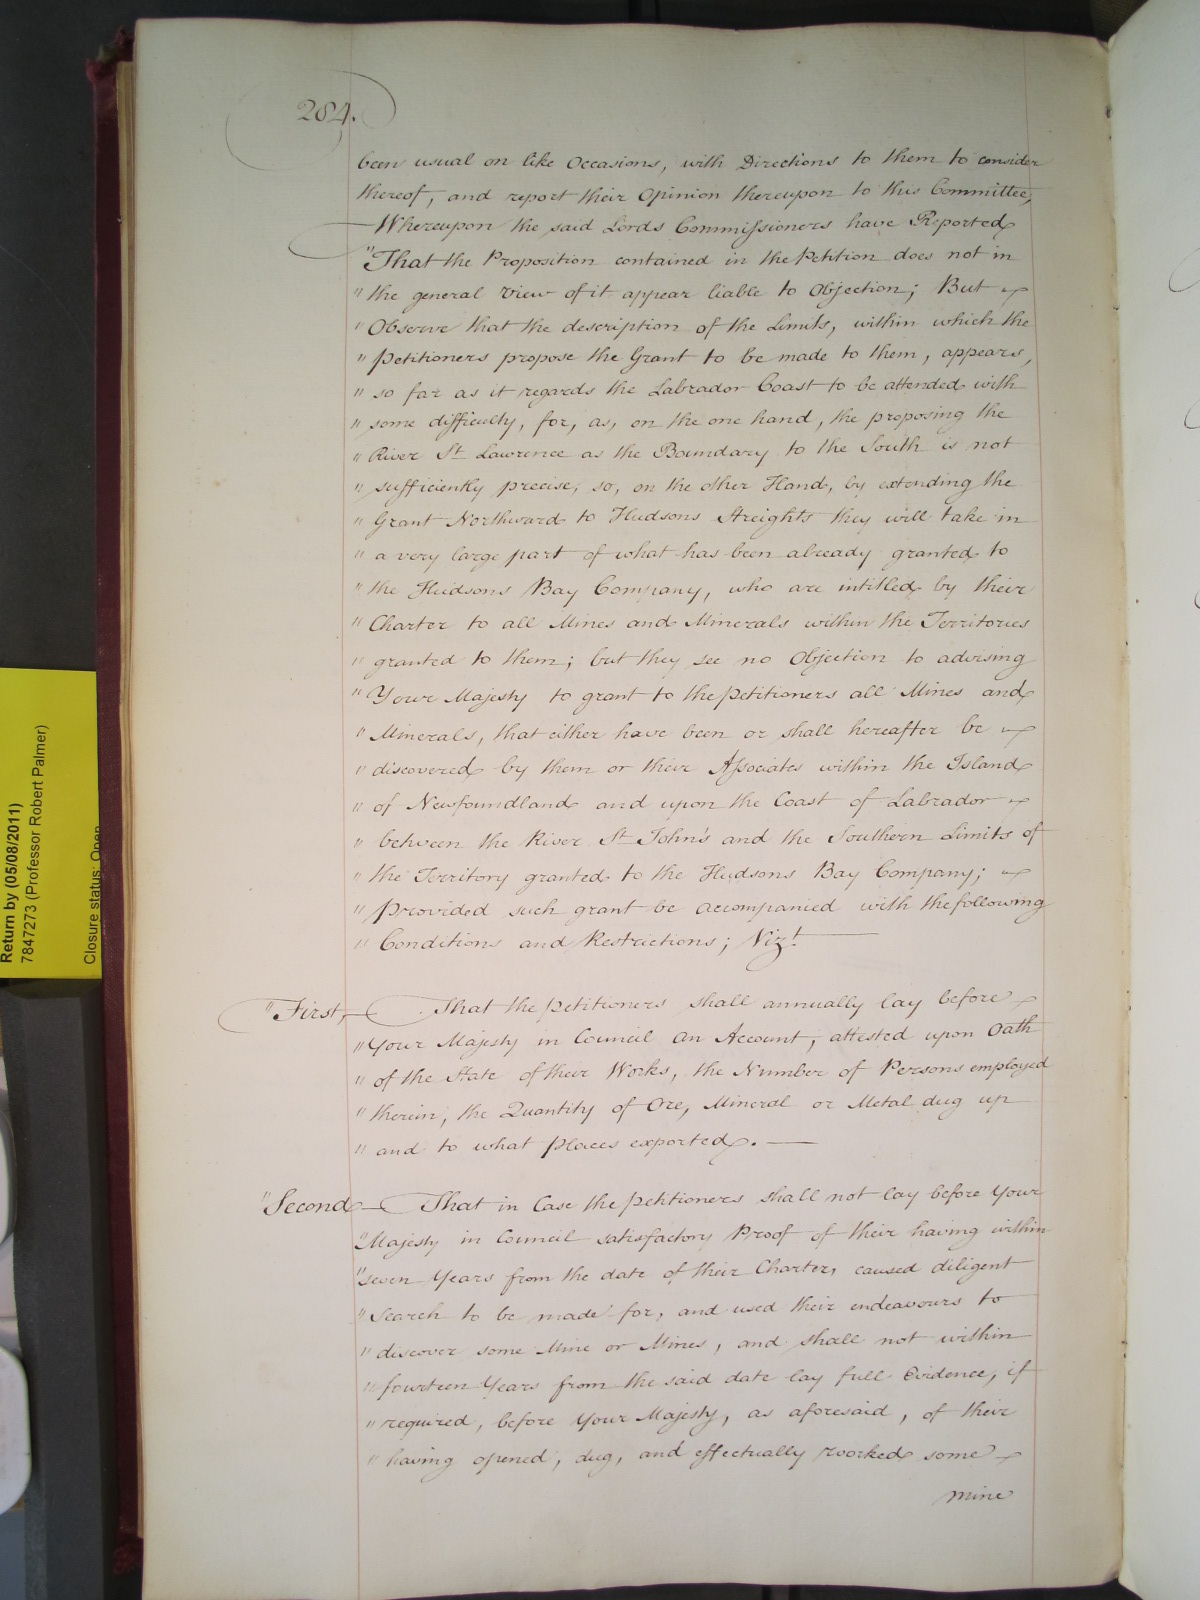 284.
been usual on like Occasions, with Directions to them to consider
thereof, and report their Opinion thereupon to this Committee,
Whereupon the said Lords Commissioners have Reported
"That the Proposition contained in the Petition does not in
" the general View of it appear liable to Objection; But
" Observe that the description of the Limits, within which the
" Petitioners propose the Grant to be made to them, appears,
" so far as it regards the Labrador Coast to be attended with
" some difficulty, for, as, on the one hand, the proposing the
" River St Lawrence as the Boundary to the South is not
" sufficiently precise; so, on the other Hand, by extending the
" Grant Northward to Hudsons Streights they will take in
" a very large part of what has been already granted to
" the Hudsons Bay Company, who are intitled by their
" Charter to all Mines and Minerals within the Territories
" granted to them; but they see no Objection to advising
" Your Majesty to grant to the Petitioners all Mines and
" Minerals, that either have been or shall hereafter be
" discovered by them or their Associates within the Island
" of Newfoundland and upon the Coast of Labrador
" between the River St John's and the Southern Limits of
" the Territory granted to the Hudsons Bay Company;
" Provided such grant be accompanied with the following
" Conditions and Restrictions; Vizt
"First, That the Petitioners shall annually lay before
" Your Majesty in Council an Account, attested upon Oath
" of the State of their Works, the Number of Persons employed
" therein, the Quantity of Ore, Mineral or Metal dug up
" and to what Places exported.
"Second That in Case the Petitioners shall not lay before Your
"Majesty in Council satisfactory Proof of their having within
"seven Years from the date of their Charter, caused diligent
" Search to be made for, and used their endeavours to
" discover some Mine or Mines, and shall not within
" fourteen Years from the said date lay full Evidence, if
" required, before Your Majesty, as aforesaid, of their
" having opened, dug, and effectually worked some
mine
Return by (05/08/2011)
7847273 (Professor Robert Palmer)
Closure status: Open